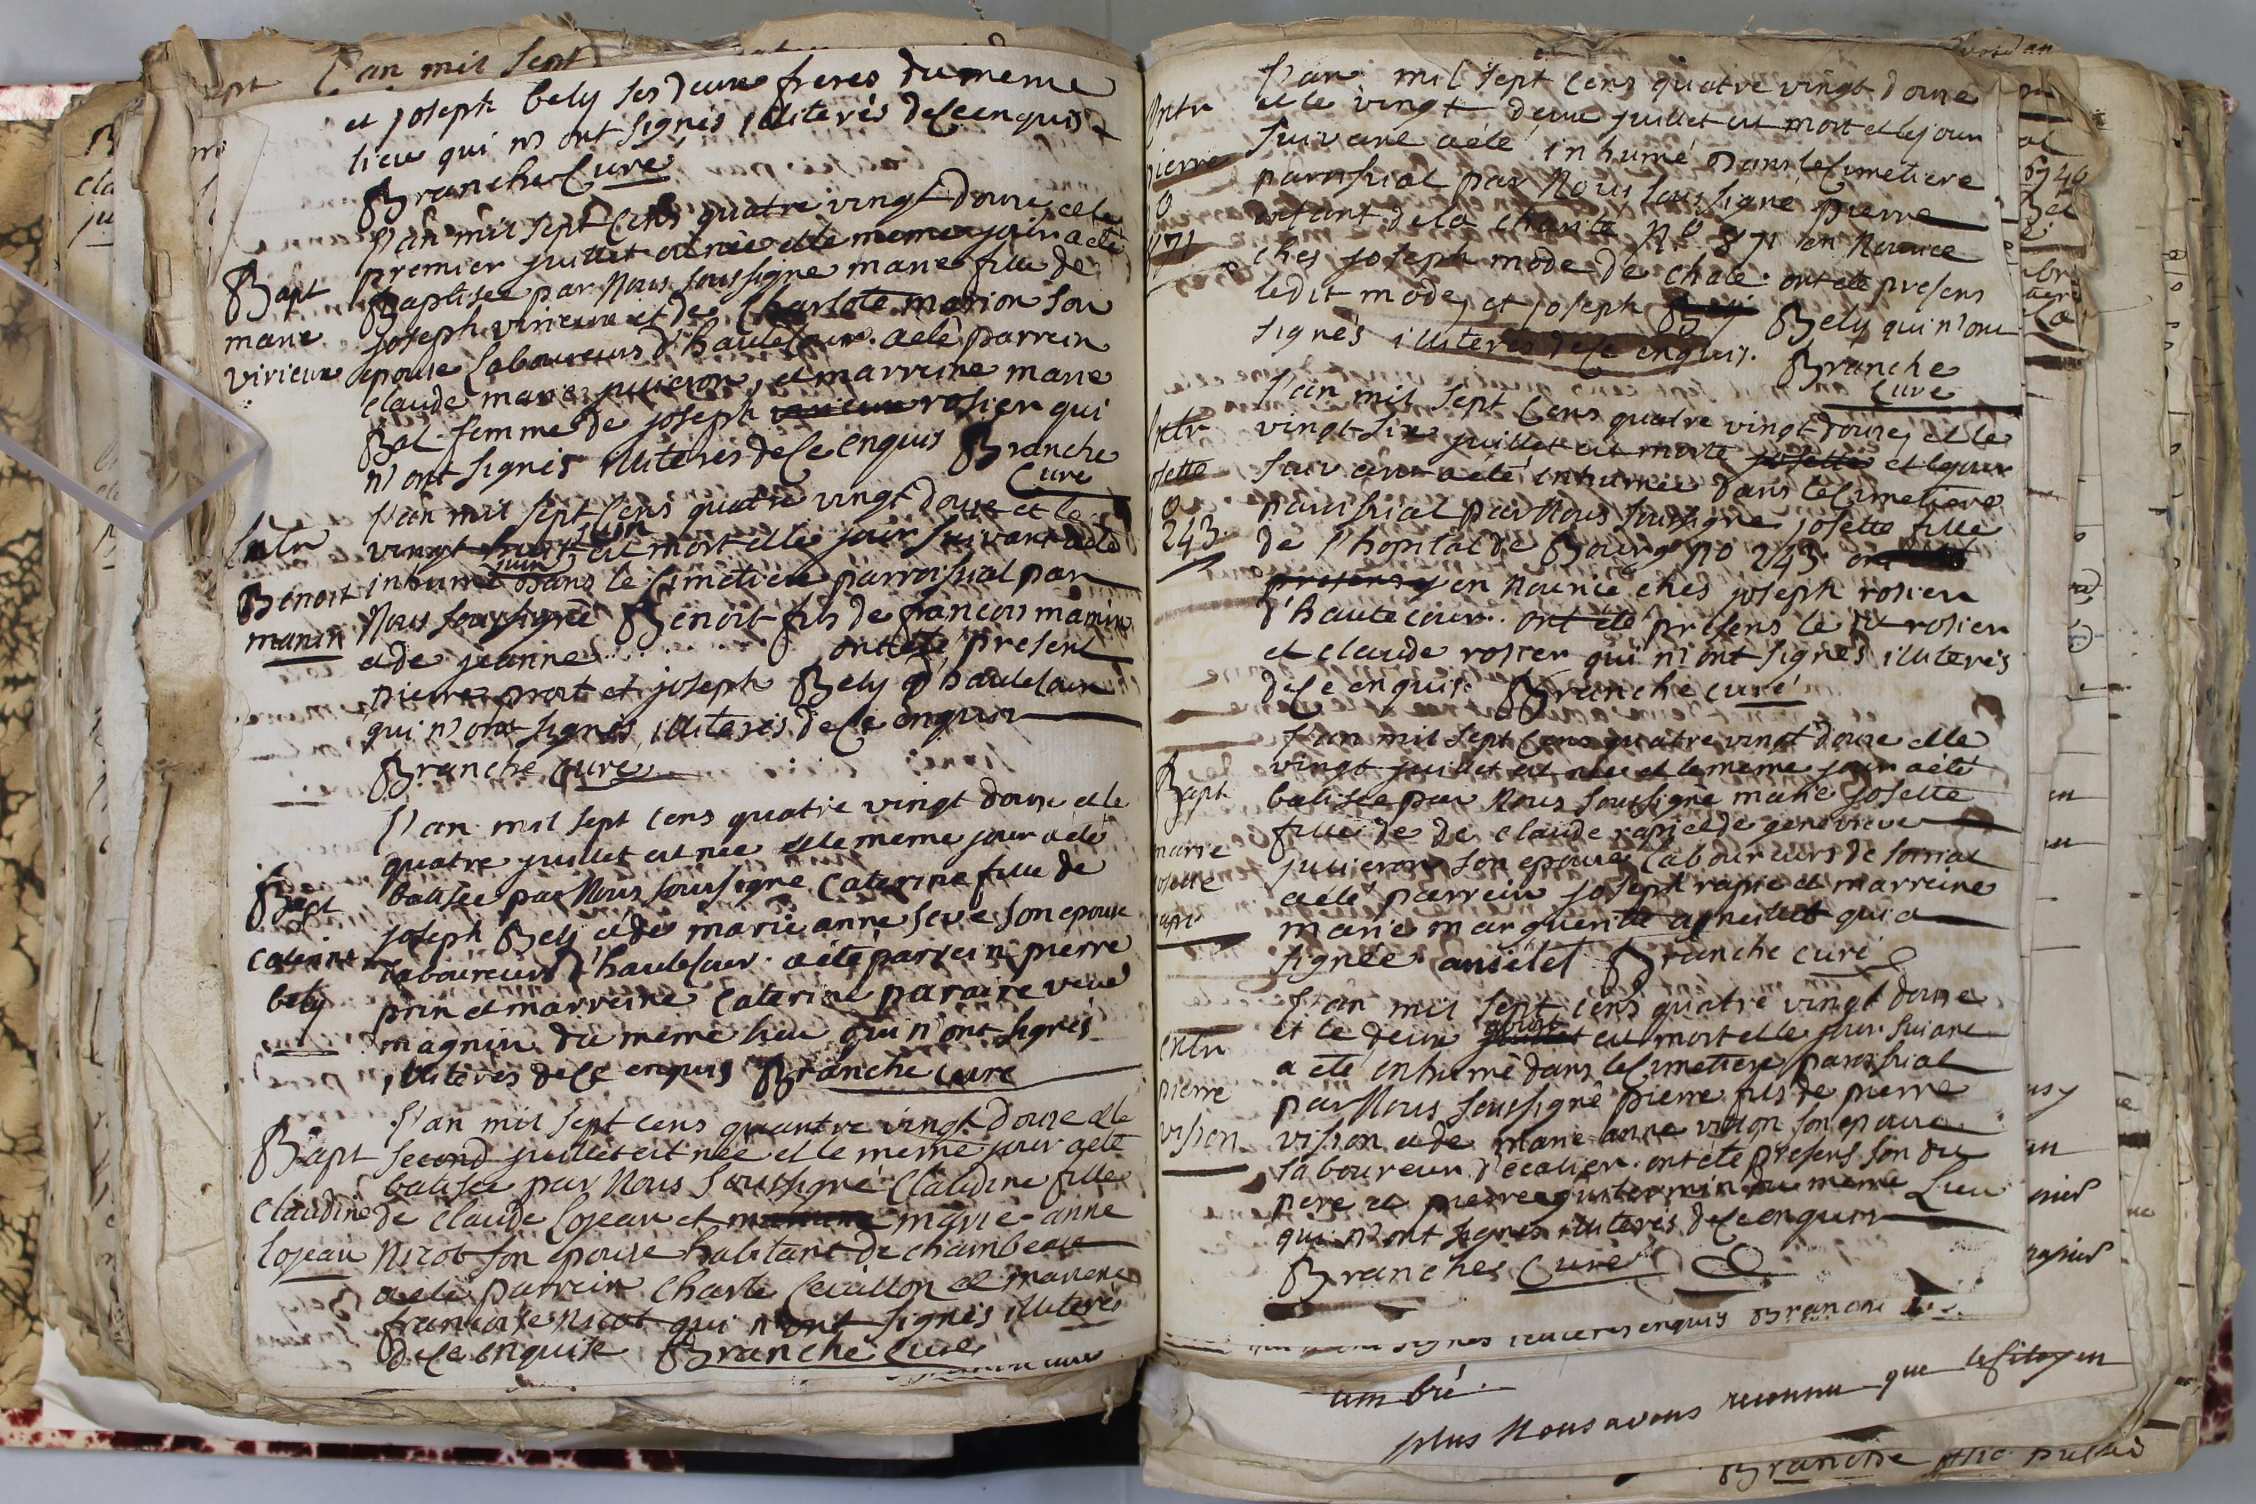 L'an mil Sept
et joseph bely ses deux freres du meme
lieu qui n'ont signés illiterés de ce enquis
Branche Curé
L'an mil sept Cens quatre vingt douse, et le
premier juillet est née et le meme jour a eté
Bapt
Baptisée par Nous soussigné marie fille de
marie
joseph virieux et de Charlote marion son
virieux
epouse Laboureurs d'hautecour. a eté parrein
claude marie juliéron, et marreine marie
Bal femme de joseph rosier qui
n'ont signés illiterés de ce enquis Branche
Curé
L'an mil sept Cens quatre vingt douse et le
Entr
vingt est mort et le jour suivant a eté
juin
inhumé dans le Cimetiere parroissial par
Benoit
manin
Nous soussigné Benoit fils de francois manin
et de jeanne ont eté present
pierre prost et joseph Bely d'hautecour
qui n'ont signés, illiterés de ce enquis
Branche Curé
L'an mil sept cens quatre vingt douse et le
quatre juillet est née et le meme jour a eté
Bapt
batisée par Nous soussigné Caterine fille de
joseph Bely et de marie anne seve son epouse
Caterine
laboureurs d'hautecour. a eté parrein pierre
bely
prin et marreine Caterine paraire veve
magnin du meme lieu qui n'ont signés
illiterés de ce enquis Branche curé
L'an mil sept cens quantre vingt douse et le
Bapt
second juillet est née et le meme jour a eté
batisée par Nous Soussigné Claudine fille
claudine
de claude Lojeau et marie-anne
Lojeau
Nicot son epouse habitant de chambeau
a eté parrein Charle Cevallon et marreine
francoise Nicot qui n'ont signés illiterés
de ce enquise Branche Curé
L'an mil sept Cens quatre vingt douse
Entr
et le vingt deux juillet est mort et le jour
suivant a eté inhumé dans le Cimetiere
pierre
paroissial par Nous soussigné pierre
0
enfant de la charité N° 871 en Nource
871
ches joseph mode de chale. ont eté presens
ledit mode, et joseph Bely qui n'ont
signés illiterés de ce enquis.
Branche
Curé
L'an mil sept Cens quatre vingt douse, et le
Entr
vingt six juillet est morte et le jour
josette
suivant a eté inhumée dans le Cimetiere
0
paroissial par Nous soussigné josette fille
243
de l'hopital de Bourg no 243
en Nourice ches joseph rosier
d'hautecour. ont eté presens le dit rosier
et claude rosier qui n'ont signés illiterés
de ce enquis. Branche curé
L'an mil sept Cens quatre vingt douse et le
vingt juillet est née et le meme jour a eté
Bapt
batisée par Nous soussigné marie josette
fille de de claude rapie et de genevieve
marie
julieron son epouse laboureurs de
josette
a eté parrein joseph rapie et marreine
rapie
marie marguerite agnellet qui a
signée anielet Branche curé
L'an mil sept cens quatre vingt douse
et le deux aoust est mort et le jour suivant
entr
a eté inhumé dans le Cimetiere paroissial
pierre
par Nous soussigné pierre fils de pierre
visson
visson et de marie anne son epouse
laboureur d'ecalier. ont eté presens son dit
pere et pierre guillermin du meme lieu
qui n'ont signés illiterés de ce enquis
Branche Curé
signés illiteres enquis Branche
plus Nous avons reconnu que le Citoyen
Branche